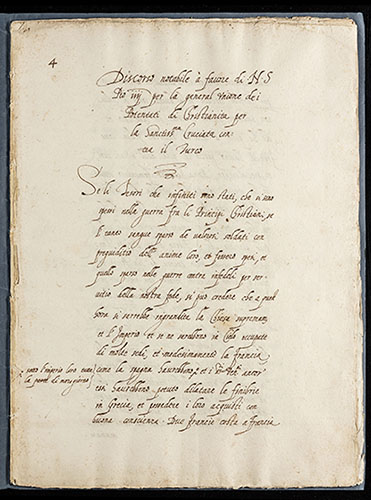 4
Discorso notabile à fauore di N. S.
Pio iiij per la general vnione dei
Potentati di Cristianità per
la Sanctiss.ma Cruciata con
tra il Turco
Se li Denari che infiniti sono stati, che si sono
spesi nelle guerre fra li Principi Cristiani, se
il sangue sparso de valorosi soldati con
pregiuditio dell' anime loro, et
quello sparso nelle guerre contra infedeli per ser
uitio della nostra fede, si può credere che a quest
hora si sarebbe la Chiesa
et l' Imperio et se ne sarebbono in Cielo occupate
di molte sedi, et medesimamente la Francia
come la Spagna haurebbono, et i
tiani haurebbono potuto dilatare le finibrie
in Grecia, et possedere i loro acquisti con
buona conscienza. Due Francie costa a Francia
sotto l'Imperio loro
la parte di mezogiorno